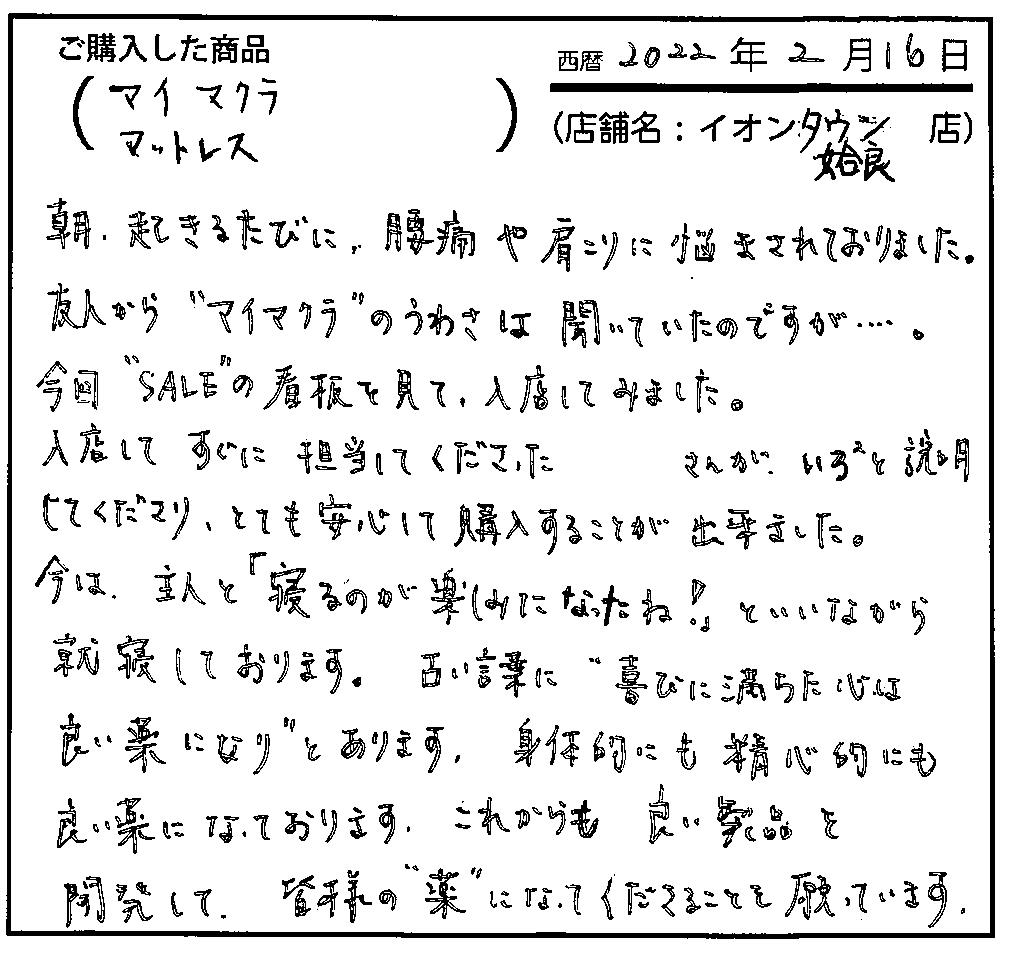 ご購入した商品
西暦 2022 年 2 月 16 日
(マイ マクラ
マットレス)
(店舗名：イオンタウン 店)
姶良
朝、起きるたびに、腰痛や肩こりに悩まされておりました。
友人から“マイマクラ”のうわさは聞いていたのですが….。
今回“SALE”の看板を見て、入店してみました。
入店してすぐに担当してくださった さんが、いろ²と説明
してくださり、とても安心して購入することが出来ました。
今は、主人と「寝るのが楽しみになったね!」といいながら
就寝しております。 古い言葉に“喜びに満ちた心は
良い薬になり”とあります。身体的にも精心的にも
良い薬になっております。これからも良い製品を
開発して、皆様の“薬”になってくださることを願っています。